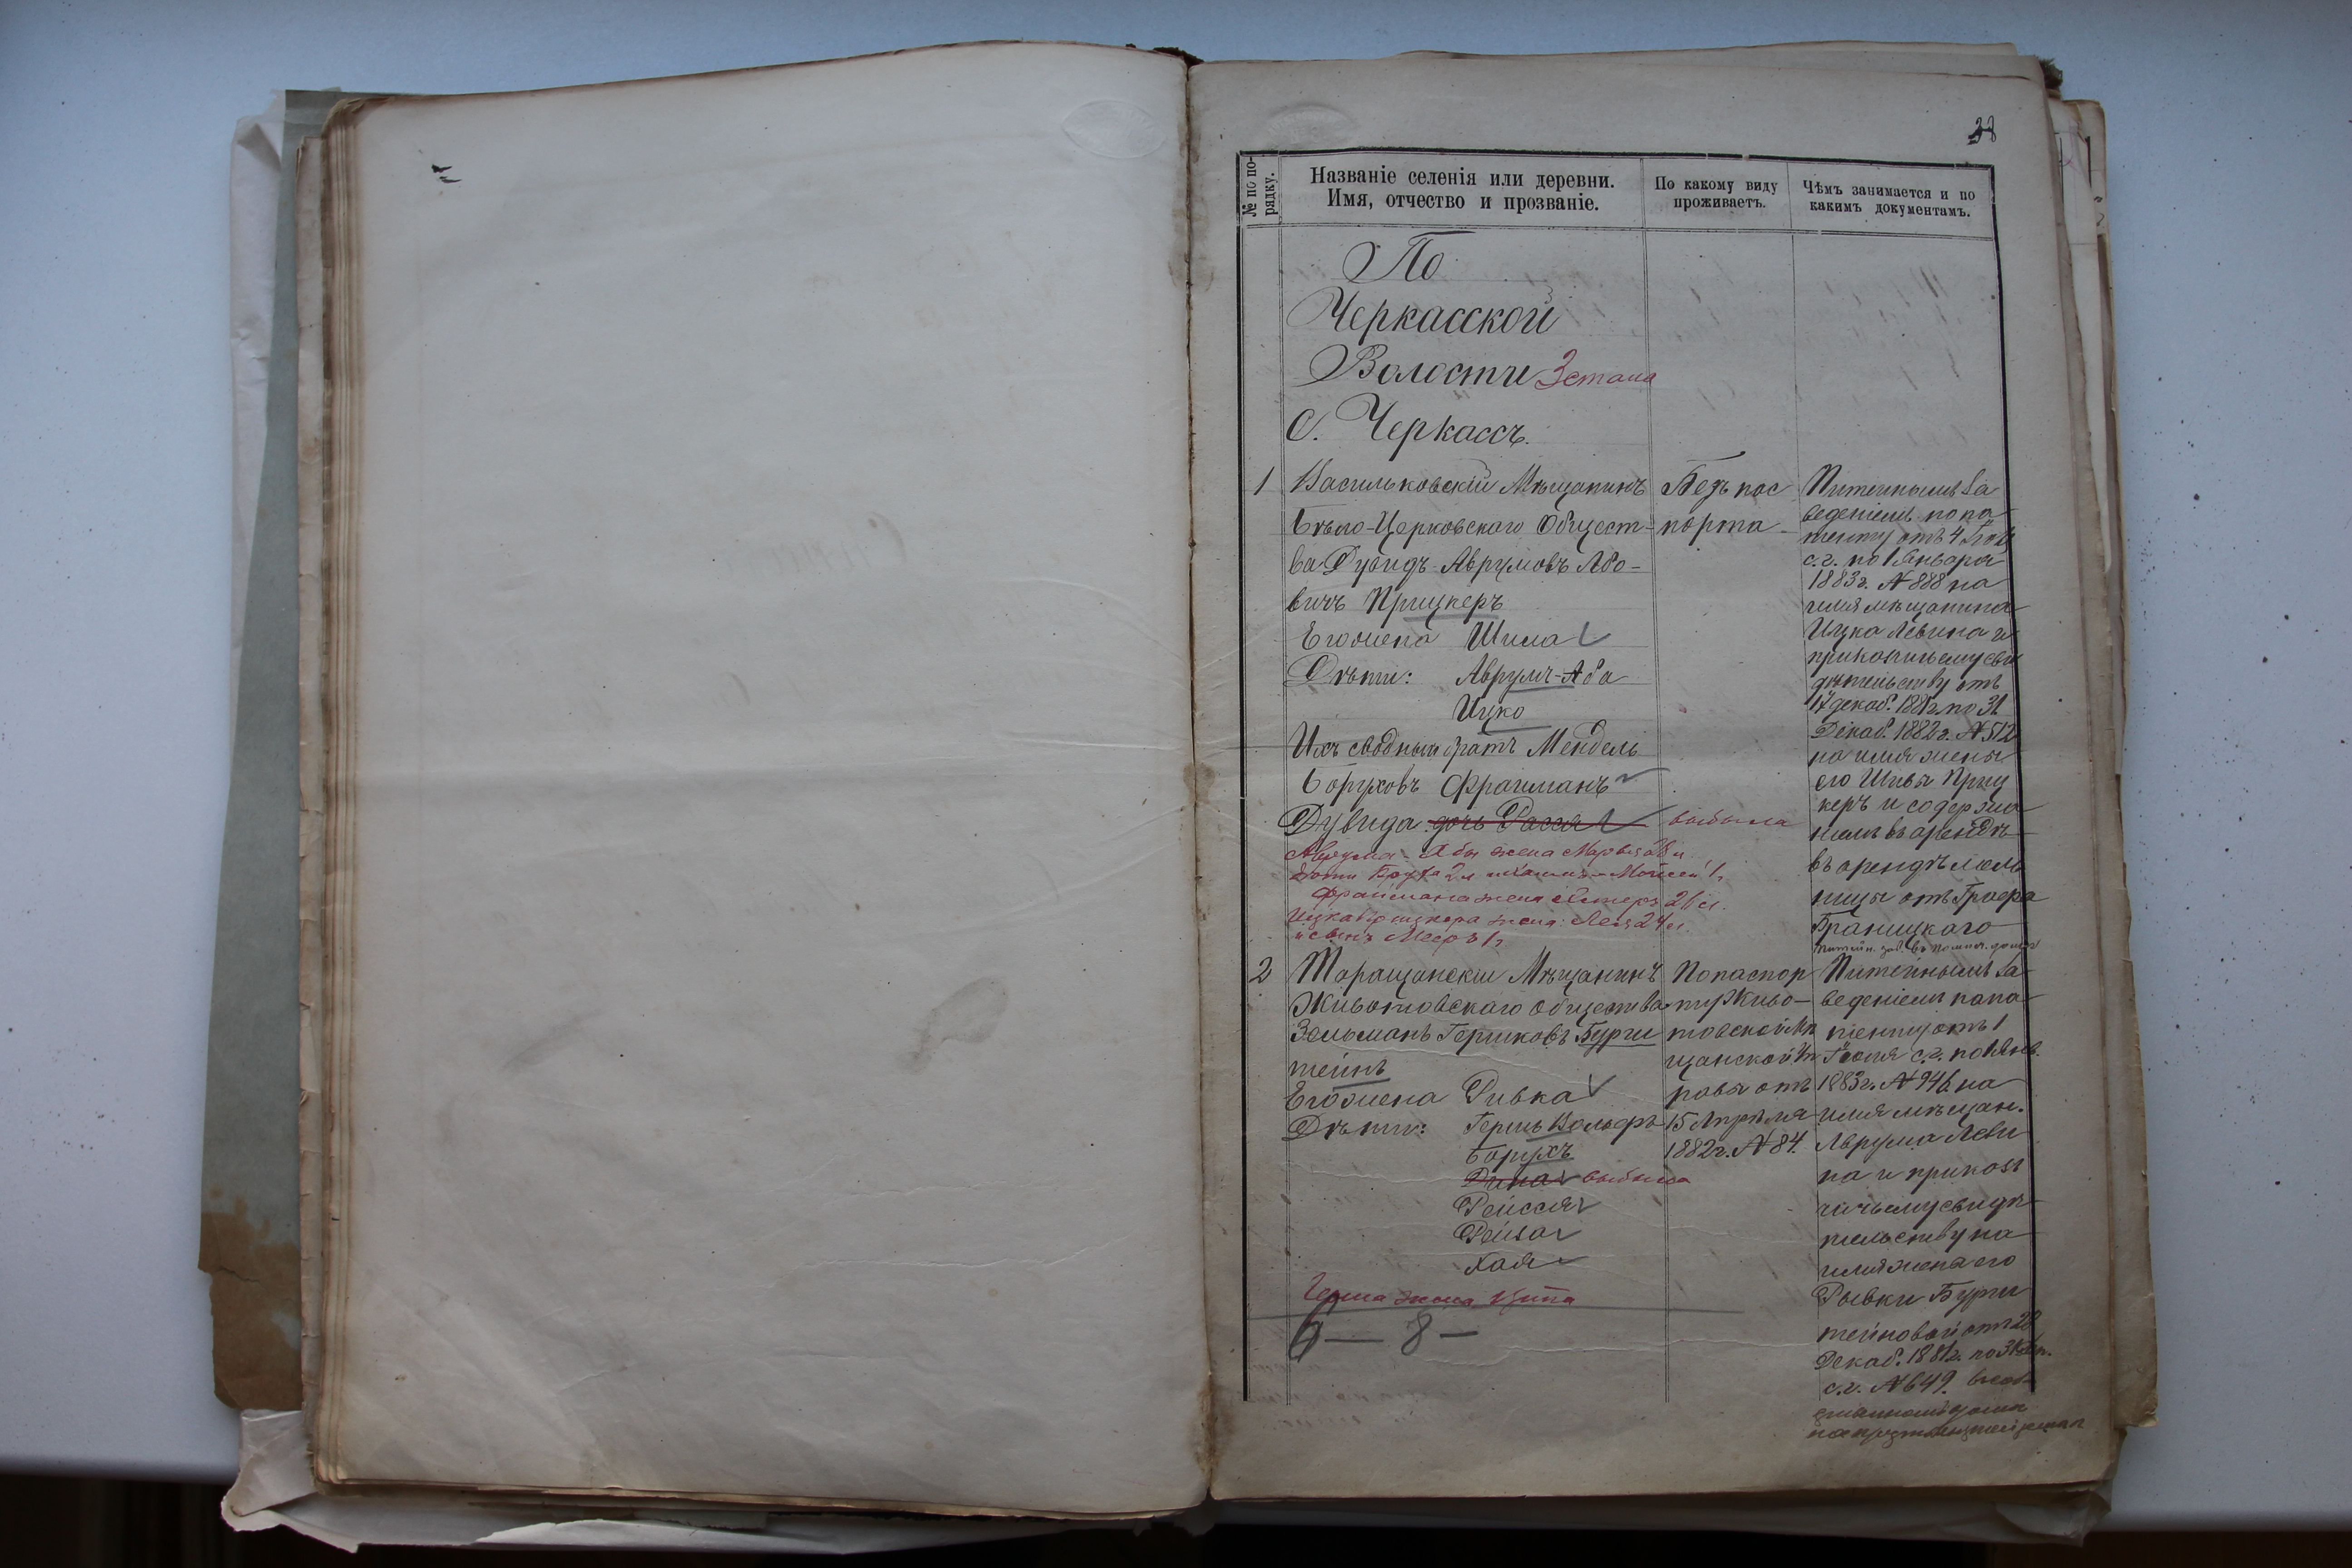 38
№ по по-
рядку.
Названіе селенія или деревни.
Имя, отчество и прозваніе.
По какому виду
проживаетъ.
Чѣмъ занимается и по
какимъ документамъ.
По
Черкасской
Волости 3 стана
С. Черкассъ.
1
Васильковскій Мѣщанинъ
Бѣло-Церковскаго Общест-
ва Дувидъ Аврумовъ Або-
вичъ Прицкеръ
Его жена Шива
Дѣти: Аврумъ-Аба
Ицко
Ихъ сводный братъ Мендель
Боруховъ Фрайманъ
Дувида дочь Расся выбыла
Аврума-Абы жена Марьяs
Фраймана жена Естеръ 21 л.
Ицка Прицкера жена: Лея 24 л.
и сынъ Мееръ 1 г.
Безъ пас
порта
Питейнымъ за
веденіемъ по па
тенту отъ 4 Іюля
с.г. по 1 Января
1883 г. № 888 на
имя мѣщанина
Ицка Левина и
приказчичьему сви
дѣтельству отъ
17 декаб. 1881 г. по 31
Декаб. 1882 г. № 512
на имя жены
его Шивы Приц
керъ и содержа
ніемъ въ арендѣ
въ арендѣ мель
ницы отъ Графа
Браницкаго
2
Таращанскій Мѣщанинъ
Животовскаго общества
Зельманъ Гершковъ Бурш
тейнъ
Его жена Ривка
Дѣти: Гершь Вольфъ
Борухъ
Дина выбыла
Рейсся
Рейза
Хая
Герша жена Ципа
6 — 8 —
По паспор
ту Живо-
товской Мѣ
щанской Уп
равы отъ
15 Апрѣля
1882 г. № 84.
Питейнымъ за-
веденіемъ по па
тенту отъ 1
Іюля с.г. по 1 Янв.
1883 г. № 946 на
имя мѣщан.
Аврума Леви
на и приказ
чичьему свидѣ
тельству на
имя жены его
Рывки Бурш
тейновой отъ 28
Декаб. 1881 г. по 31 Дек.
с.г. № 649.